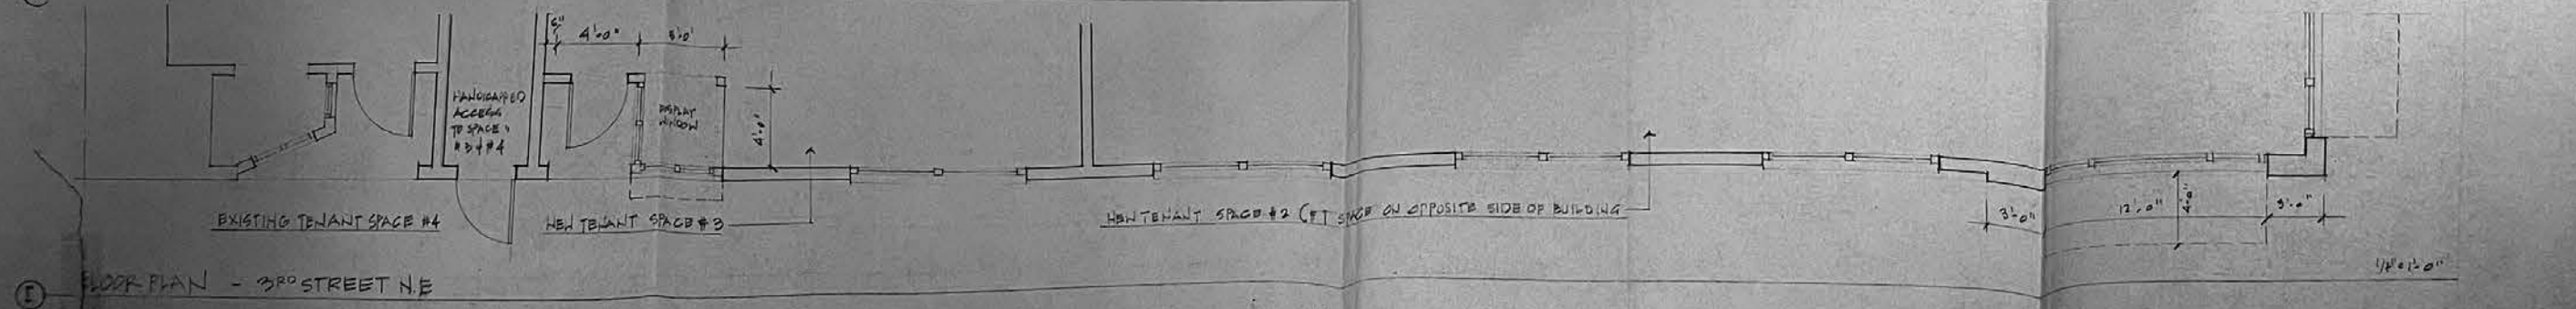 6"
4'-0"
3'-0"
HANDICAPPED
ACCESS
TO SPACE'S
#3 & #4
DISPLAY
WINDOW
4'-0"
EXISTING TENANT SPACE #4
NEW TENANT SPACE #3
NEW TENANT SPACE #2 ( SPACE ON OPPOSITE SIDE OF BUILDING
3'-0"
12'-0"
4'-0"
3'-0"
FLOOR PLAN - 3RD STREET N.E
1'-0"